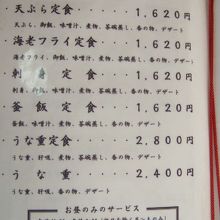 天ぷら定食 ‥‥‥ 1,620円
天ぷら、御飯、味噌汁、煮物、茶碗蒸し、香の物、デザート
海老フライ定食 ‥‥ 1,620円
海老フライ、御飯、味噌汁、煮物、茶碗蒸し、香の物、デザート
刺身定食 ‥‥‥ 1,620円
刺身、御飯、味噌汁、煮物、茶碗蒸し、香の物、デザート
釜飯定食 ‥‥‥ 1,620円
釜飯、味噌汁、煮物、茶碗蒸し、香の物、デザート
うな重定食 ‥‥‥ 2,800円
うな重、肝吸、煮物、茶碗蒸し、香の物、デザート
うな重 ‥‥‥ 2,400円
うな重、肝吸、香の物、デザート
お昼のみのサービス